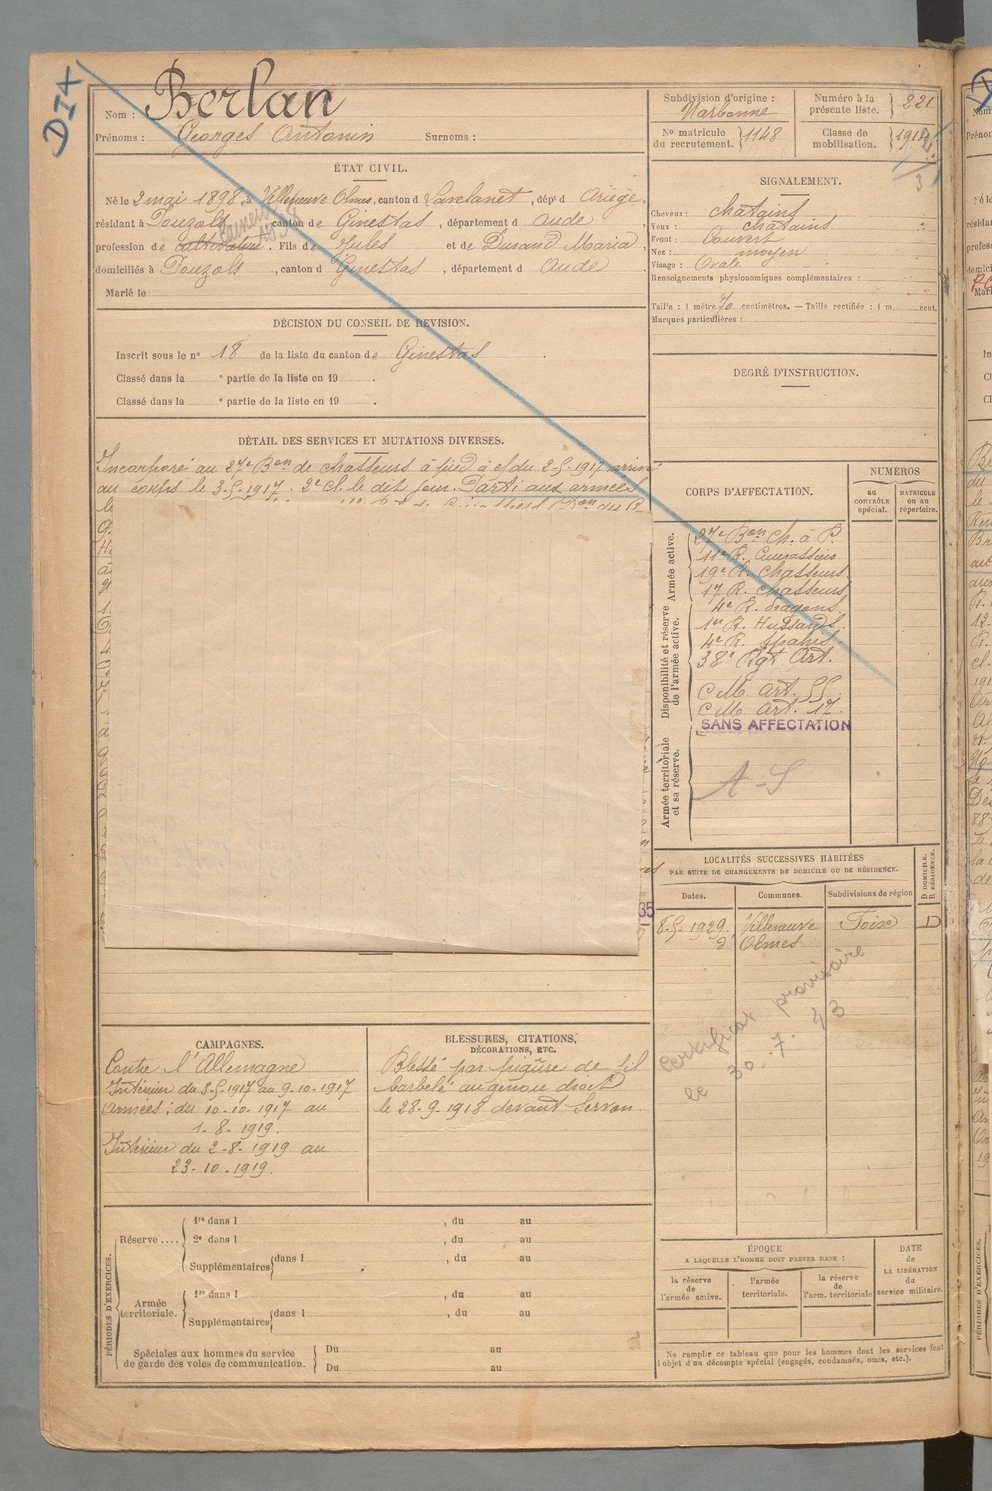 DIX
Nom : Berlan
Prénoms : Georges Antonin Surnoms :
ÉTAT CIVIL.
Né le 2 mai 1898, à Villeneuve Olmes, canton d Lavelanet, dépt d Ariège,
résidant à Pouzols, canton de Ginestas, département d Aude
profession de cultivateur. Fils de Jules et de Durand Maria,
domiciliés à Pouzols, canton d Ginestas, département d Aude
Marié le
DÉCISION DU CONSEIL DE REVISION.
Inscrit sous le n° 18 de la liste du canton de Ginestas.
Classé dans la e partie de la liste en 19 .
Classé dans la e partie de la liste en 19 .
DÉTAIL DES SERVICES ET MUTATIONS DIVERSES.
Incorporé au 27e Bon de chasseurs à pied à c/ du 2-5-1917 arrivé
au corps le 3-5-1917. 2e Cl. le dit jour. Parti aux armées
35
CAMPAGNES.
Contre l'Allemagne
Intérieur du 3-5-1917 au 9-10-1917
Armées : du 10-10-1917 au
1-8-1919.
Intérieur du 2-8-1919 au
23-10-1919.
BLESSURES, CITATIONS,
DÉCORATIONS, ETC.
Blessé par piqûre de fil
barbelé au genou droit
le 28-9-1918 devant Servon.
PÉRIODES D'EXERCICES.
Réserve ....
1re dans l , du au
2e dans l , du au
Supplémentaires dans l , du au
Armée territoriale.
1re dans l , du au
Supplémentaires dans l , du au
Spéciales aux hommes du service
de garde des voies de communication.
Du au
Du au
Subdivision d'origine :
Narbonne
Numéro à la
présente liste. 221
N° matricule
du recrutement. 1148
Classe de
mobilisation. 1912
3
SIGNALEMENT.
Cheveux : chatains
Yeux : chatains
Front : Couvert
Nez : moyen
Visage : Ovale
Renseignements physionomiques complémentaires :
Taille : 1 mètre 70 centimètres. — Taille rectifiée : 1 m. cent.
Marques particulières :
DEGRÉ D'INSTRUCTION.
CORPS D'AFFECTATION.
NUMÉROS
au
CONTRÔLE
spécial.
MATRICULE
ou au
répertoire.
Disponibilité et réserve
de l'armée active.
Armée active.
27e Bon Ch. à P.
11e R. Cuirassiers
19e R. Chasseurs
17 R. Chasseurs
4e R. dragons
1er R. Hussards
4e R. Spahis
38e Rgt Art.
C M Art. 55
C M Art. 17
SANS AFFECTATION
Armée territoriale
et sa réserve.
A-S
LOCALITÉS SUCCESSIVES HABITÉES
PAR SUITE DE CHANGEMENTS DE DOMICILE OU DE RÉSIDENCE.
Dates. Communes. Subdivisions de région
D DOMICILE.
R RÉSIDENCE.
8-5-1929. Villeneuve Foix D
Olmes
Certificat provisoire
le 30-7-43
ÉPOQUE
A LAQUELLE L'HOMME DOIT PASSER DANS :
la réserve
de
l'armée active.
l'armée
territoriale.
la réserve
de
l'arm. territoriale
DATE
de
LA LIBÉRATION
du
service militaire.
Ne remplir ce tableau que pour les hommes dont les services font
l'objet d'un décompte spécial (engagés, condamnés, omis, etc.).